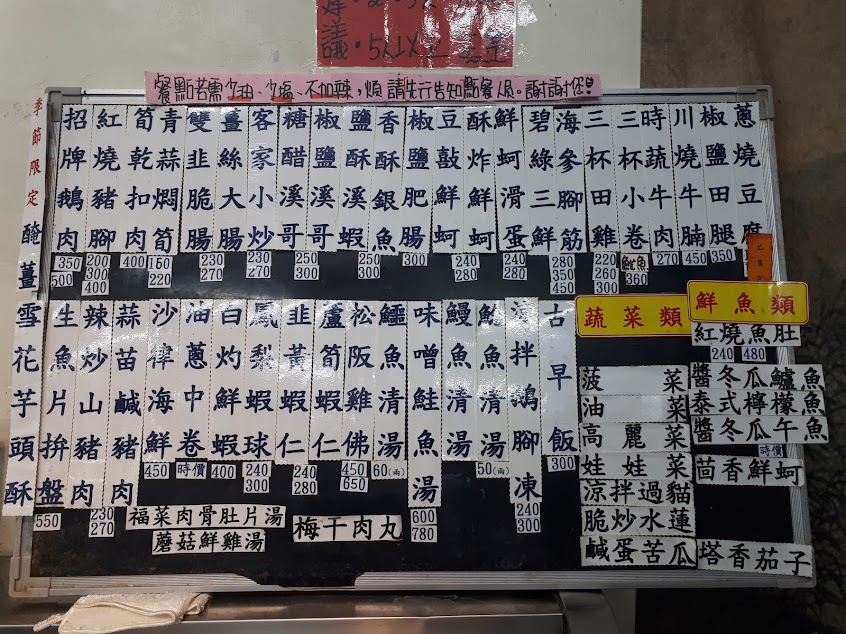 議
餐點若需少油、少鹽、不加辣，煩請先行告知點餐人員。謝謝您
季節限定
醃薑
雪花芋頭酥
招牌鵝肉
350
500
紅燒豬腳
200
300
400
筍乾扣肉
400
青蒜燜筍
150
220
雙韭脆腸
230
270
薑絲大腸
客家小炒
230
270
糖醋溪哥
250
300
椒鹽溪哥
鹽酥溪蝦
250
300
香酥銀魚
椒鹽肥腸
300
豆鼓鮮蚵
240
280
酥炸鮮蚵
鮮蚵滑蛋
240
280
碧綠三鮮
海參腳筋
280
350
450
三杯田雞
220
260
300
三杯小卷
魷魚
360
時蔬牛肉
270
川燒牛腩
450
椒鹽田腿
350
蔥燒豆腐
生魚片拚盤
550
辣炒山豬肉
230
270
蒜苗鹹豬肉
沙律海鮮
450
油蔥中卷
時價
白灼鮮蝦
400
鳳梨蝦球
240
300
韭黃蝦仁
240
280
蘆筍蝦仁
松阪雞佛
450
650
鱷魚清湯
60(兩)
味噌鮭魚湯
600
780
鰻魚清湯
魚清湯
50(兩)
涼拌鵝腳凍
240
300
古早飯
300
福菜肉骨肚片湯
蘑菇鮮雞湯
梅干肉丸
蔬菜類
菠菜
油菜
高麗菜
娃娃菜
涼拌過貓
脆炒水蓮
鹹蛋苦瓜
鮮魚類
紅燒魚肚
240 480
醬冬瓜鱸魚
泰式檸檬魚
醬冬瓜午魚
時價
茴香鮮蚵
塔香茄子